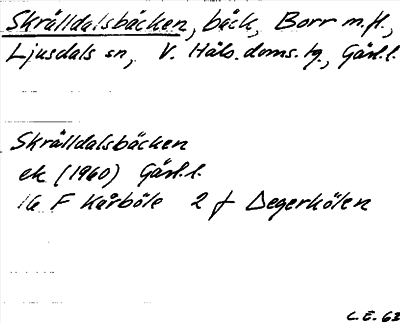 Skrålldalsbäcken, bäck, Borr m.fl.,
Ljusdals sn, V. Häls. doms. tg., Gävl. l.
Skrålldalsbäcken
ek (1960) Gävl. l.
16 F Kårböle 2 f Degerkölen
C.E. 63